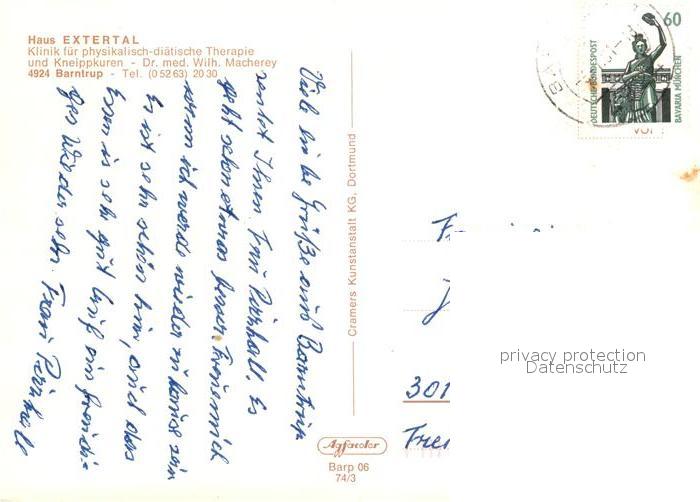 Haus EXTERTAL
Klinik für physikalisch-diätische Therapie
und Kneippkuren - Dr. med. Wilh. Macherey
4924 Barntrup - Tel. (0 52 63) 20 30
Viele liebe Grüße aus Barntrup
sendet Ihnen Frau Es
geht schon etwas besser.
wenn ich werde wieder zu hause sein
Es ist sehr schön hier, auch das
Essen is sehr gut
ges Wiedersehn. Frau
Cramers Kunstanstalt KG, Dortmund
Agfacolor
Barp 06
74/3
60
DEUTSCHE BUNDESPOST
BAVARIA MÜNCHEN
301
privacy protection
Datenschutz